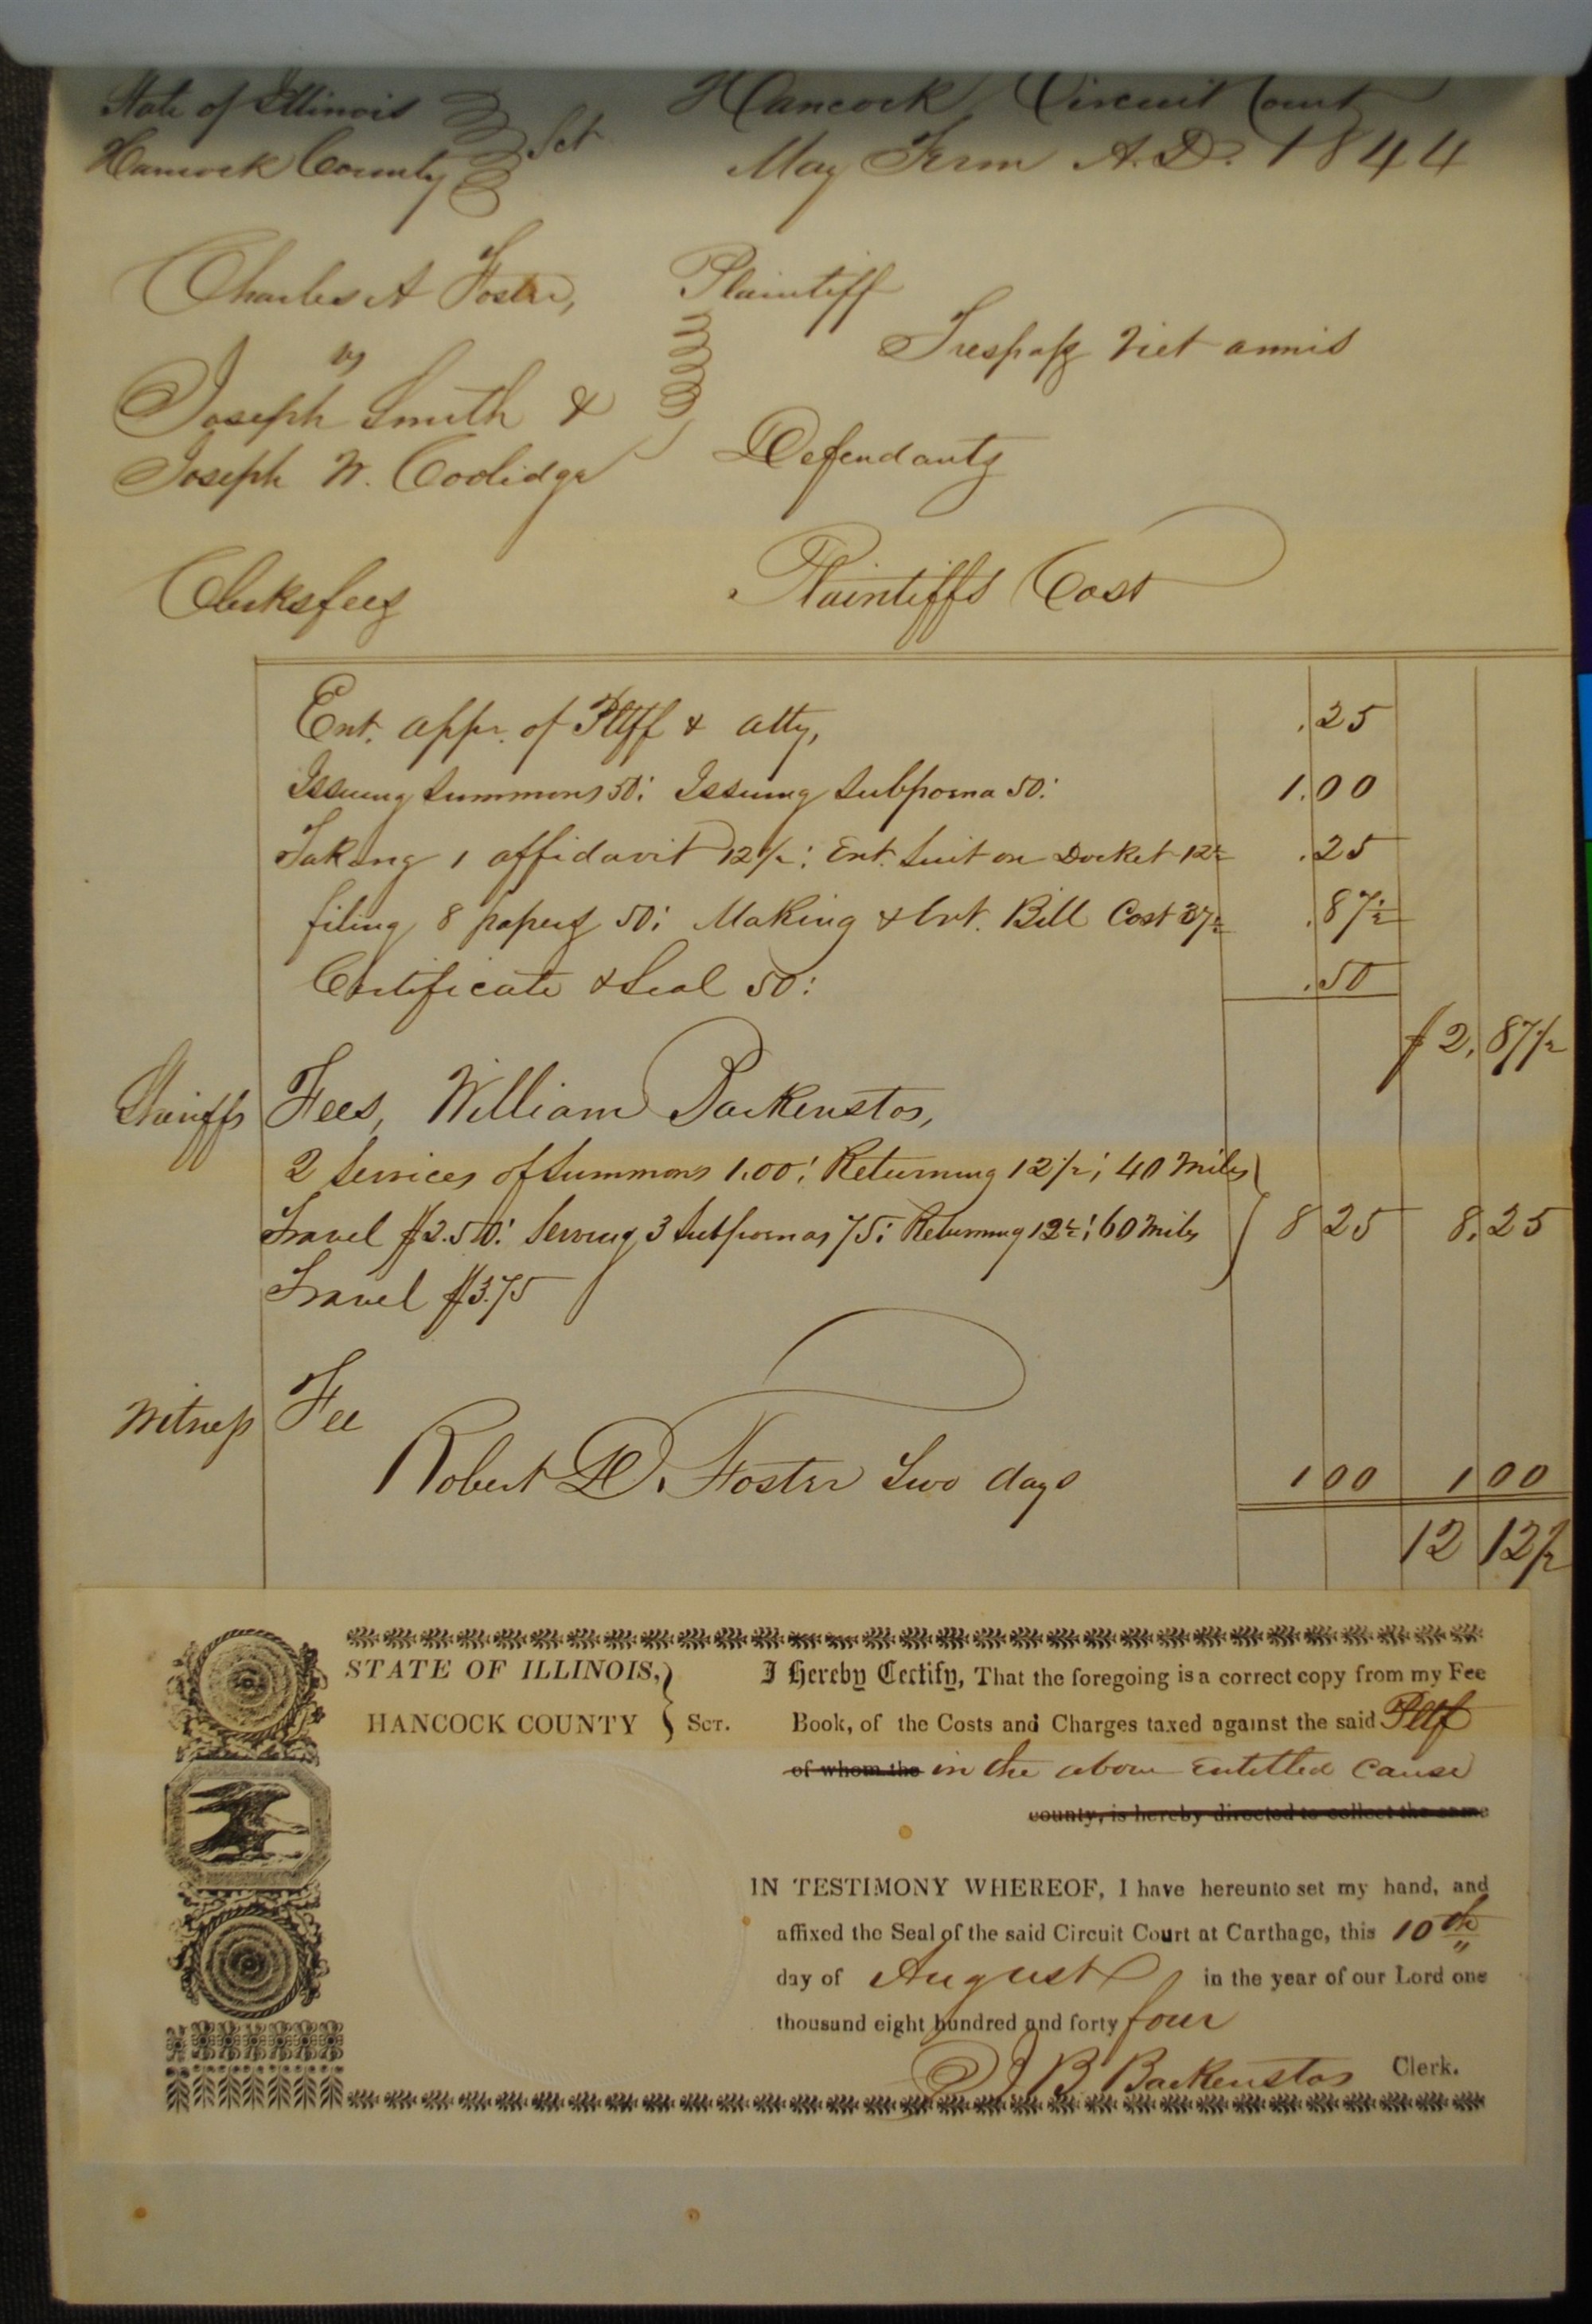 State of Illinois } Sct Hancock Circuit Court
Hancock County } May Term A.D. 1844
Charles A Foster, Plaintiff
vs Trespass viet armis
Joseph Smith &
Joseph W. Coolidge Defendants
Clerks fees Plaintiffs Cost
Ent. appr. of Pltff & atty, .25
Issuing Summons 50: Issuing Subpoena 50: 1.00
Taking 1 affidavit 12½: Ent. Suit on Docket 12½ .25
filing 8 papers 50: Making & Ent. Bill Cost 37½ .87½
Certificate & Seal 50: .50
$2,87½
Sheriffs Fees, William Backenstos,
2 Services of Summons 1.00: Returning 12½: 40 Miles
Travel $2.50: Serving 3 Subpoenas 75: Returning 12½: 60 Miles } 8 25 8.25
Travel $3.75
Witness Fee
Robert D. Foster Two days 1 00 1 00
12 12½
STATE OF ILLINOIS, } I Hereby Certify, That the foregoing is a correct copy from my Fee
HANCOCK COUNTY } SCT. Book, of the Costs and Charges taxed against the said Pltf
of whom the in the above entitled cause
county, is hereby directed to collect the same
IN TESTIMONY WHEREOF, I have hereunto set my hand, and
affixed the Seal of the said Circuit Court at Carthage, this 10th
day of August in the year of our Lord one
thousand eight hundred and forty four
J B Backenstos Clerk.